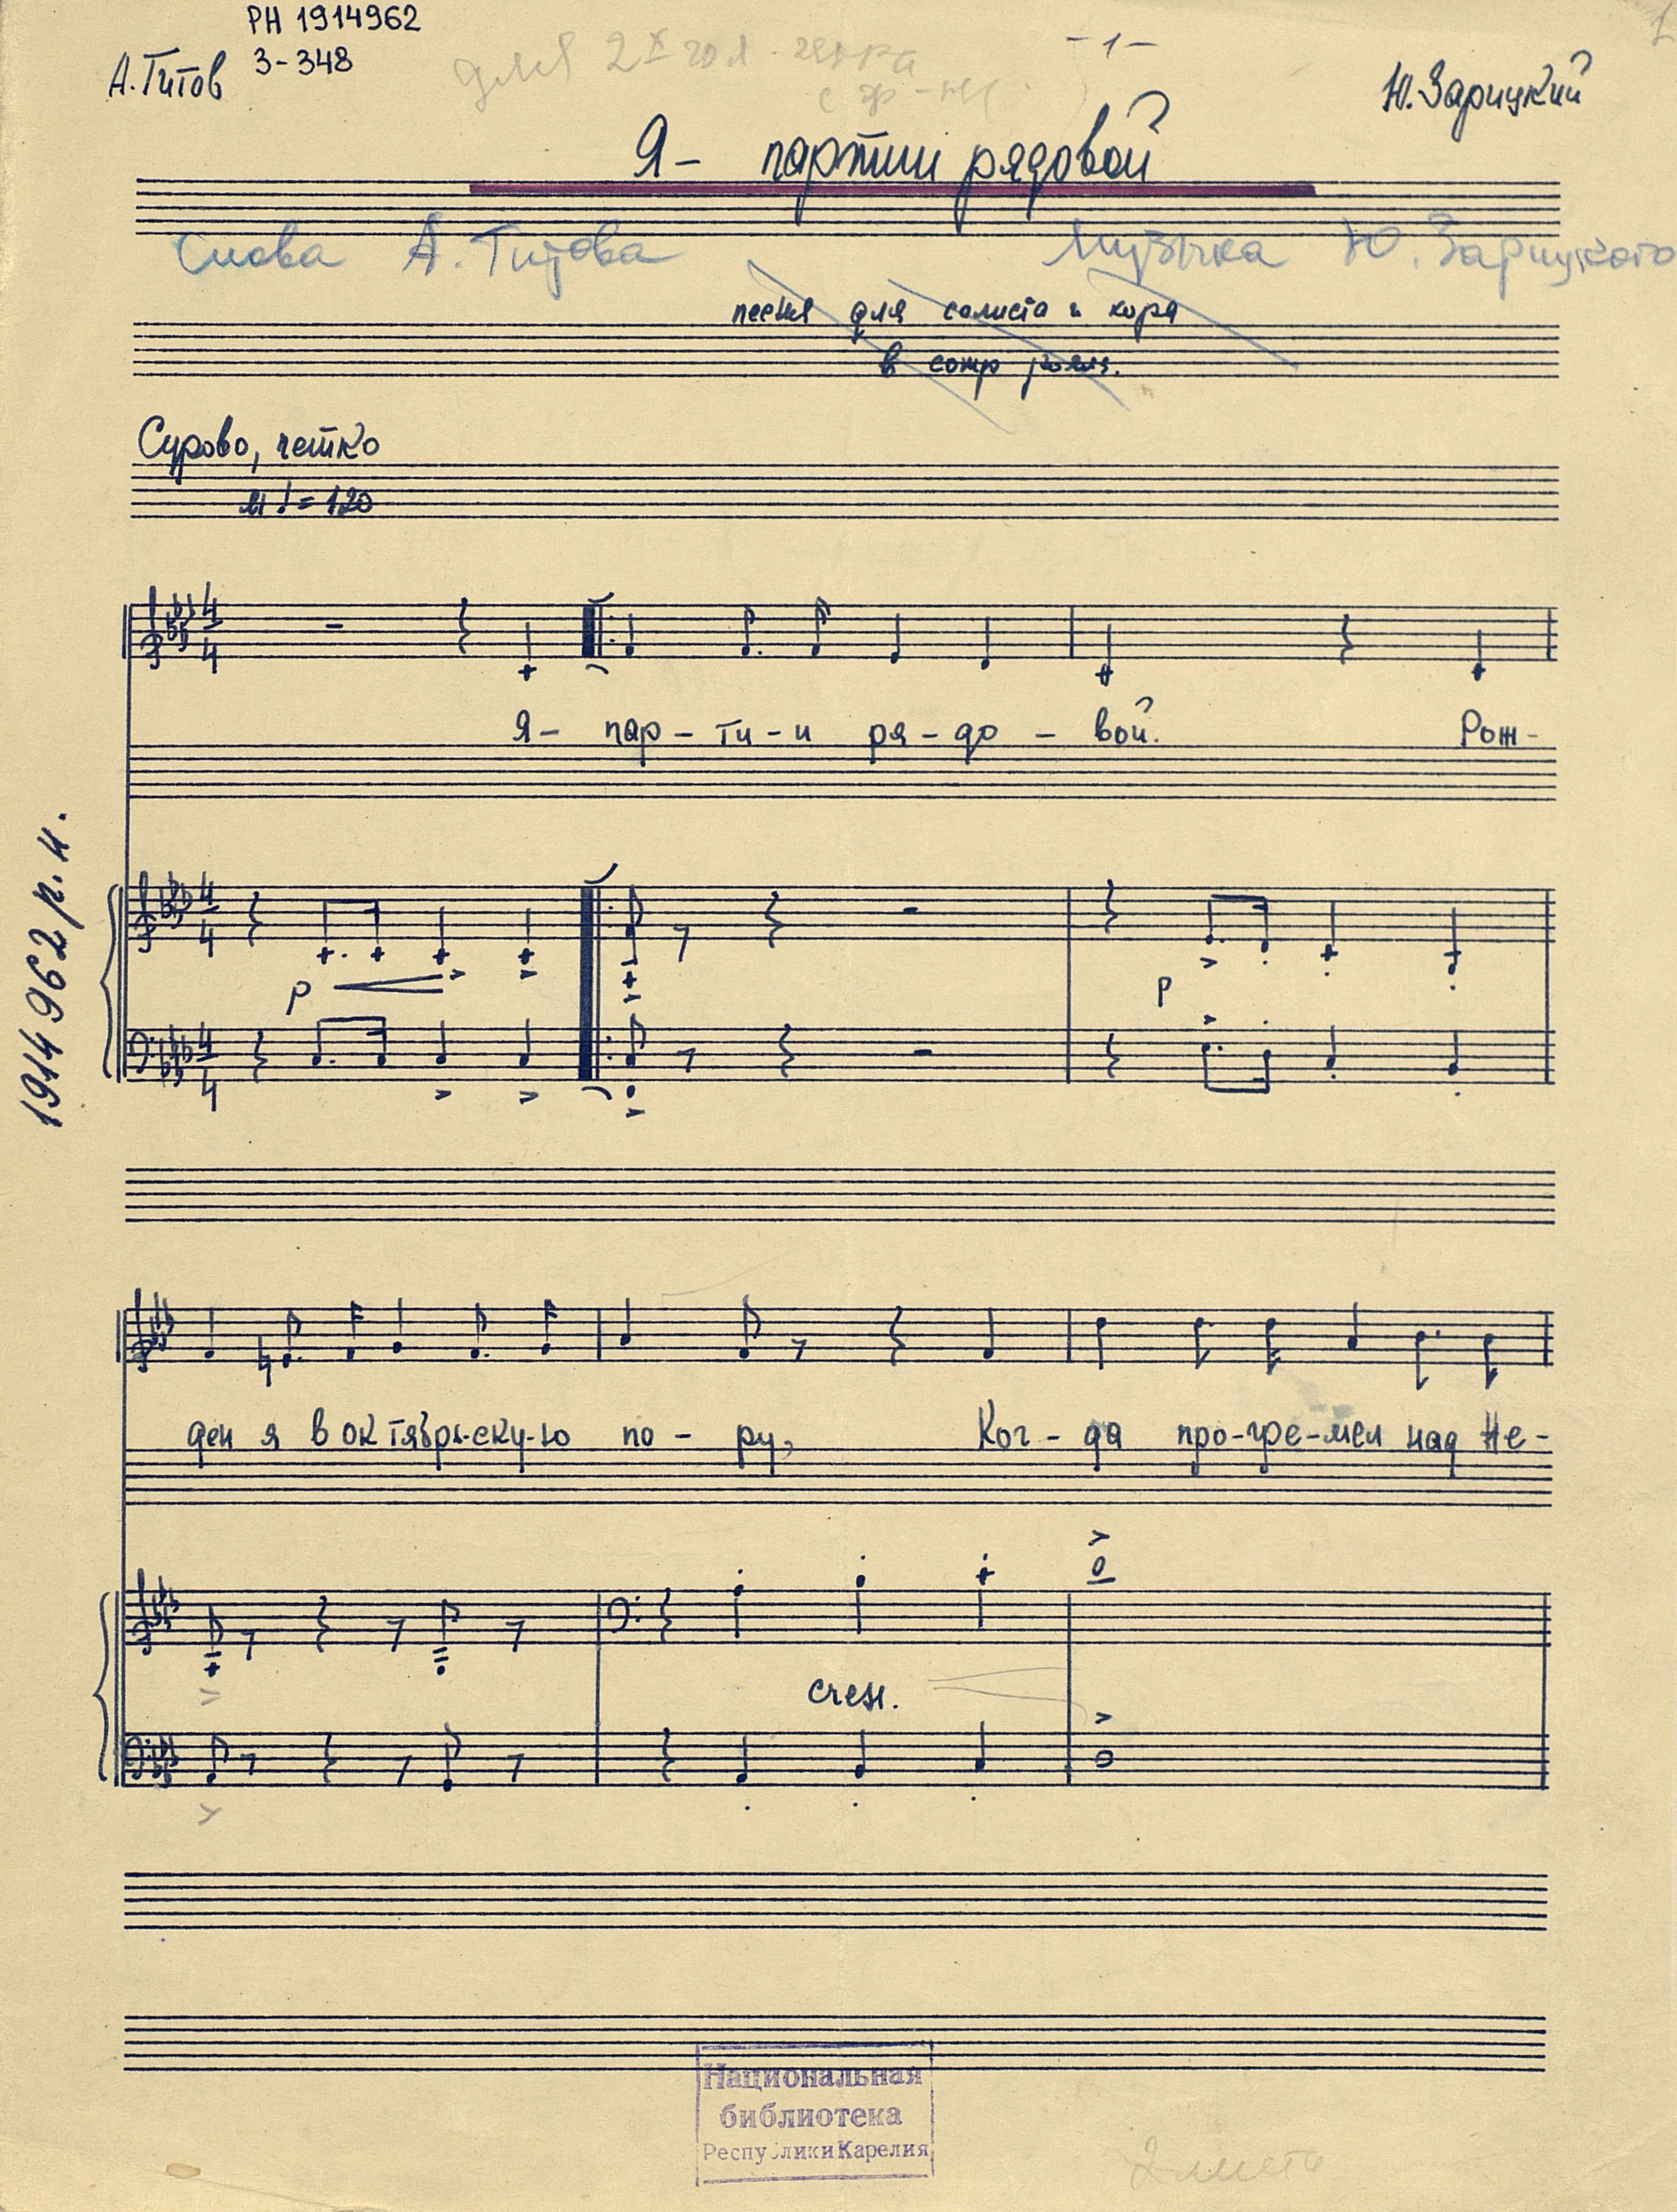 РН 1914962
А. Титов 3-348
для 2х гол. хора
- 1 -
с ф-но
Ю. Зарицкий
Я - партии рядовой
Слова А. Титова Музыка Ю. Зарицкого
песня для солиста и хора
в сопр рояля.
Сурово, четко
М ♩ = 120
4/4
Я - пар - ти - и ря - до - вой. Рож -
4/4
p
p
4/4
1914962 р. н.
ден я в октябрь-ску-ю по - ру, Ког - да про-гре-мел над Не -
cresc.
Национальная
библиотека
Республики Карелия
2 листа